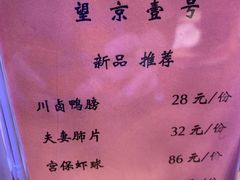 望京壹号
新品 推荐
川卤鸭膀 28 元/份
夫妻肺片 32 元/份
宫保虾球 86 元/份